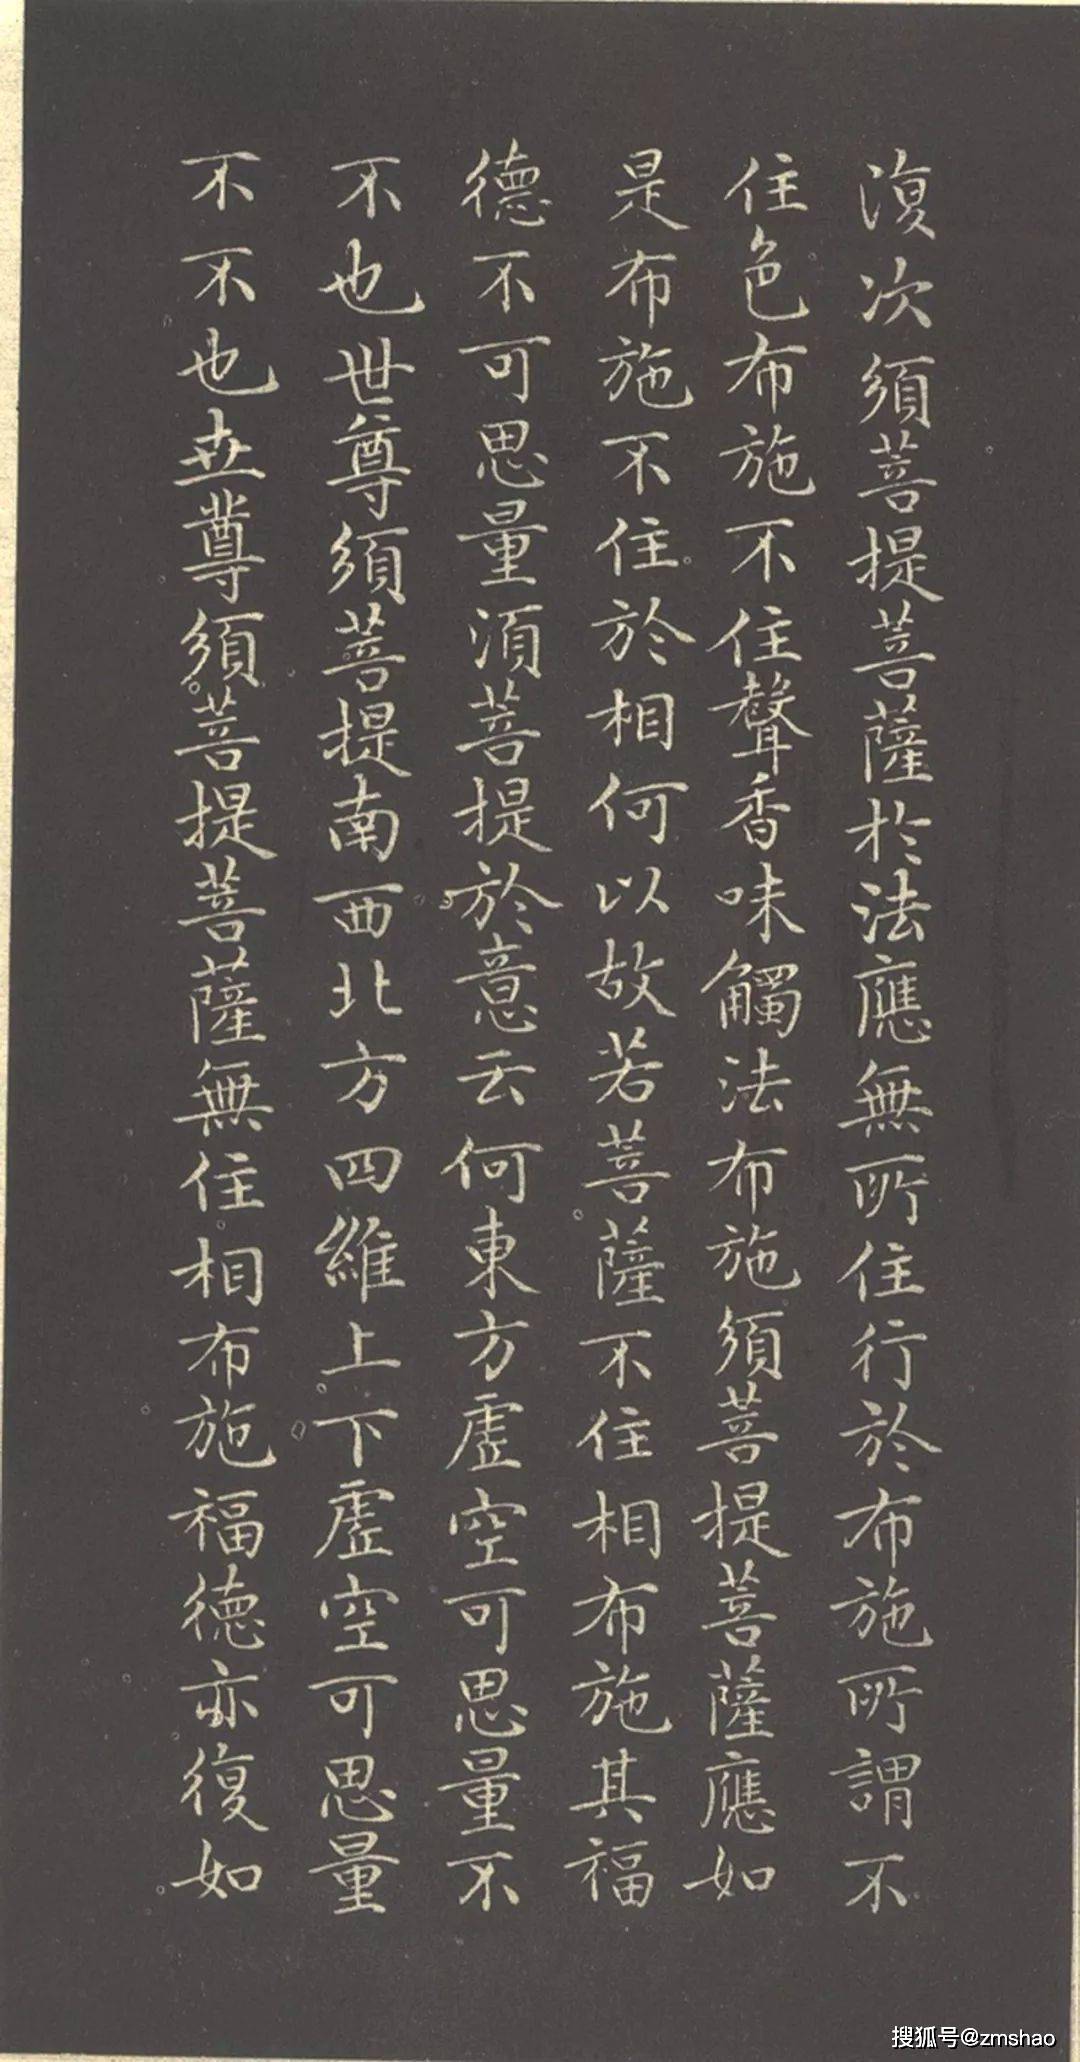 復次須菩提菩薩於法應無所住行於布施所謂不
住色布施不住聲香味觸法布施須菩提菩薩應如
是布施不住於相何以故若菩薩不住相布施其福
德不可思量須菩提於意云何東方虛空可思量不
不也世尊須菩提南西北方四維上下虛空可思量
不不也世尊須菩提菩薩無住相布施福德亦復如
搜狐号@zmshao